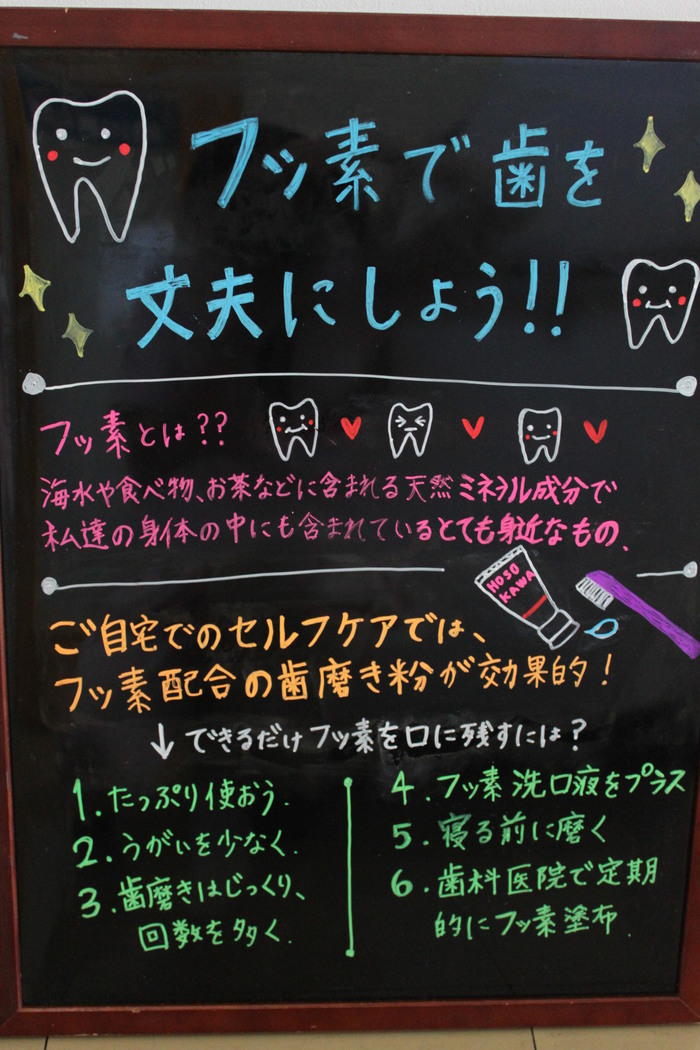 フッ素で歯を
丈夫にしょう!!
フッ素とは??
海水や食べ物、お茶などに含まれる天然ミネラル成分で
私達の身体の中にも含まれているとても身近なもの、
HOSO
KAWA
ご自宅でのセルフケアでは、
フッ素配合の歯磨き粉が効果的!
↓できるだけフッ素を口に残すには?
1.たっぷり使おう.
2.うがいを少なく.
3.歯磨きはじっくり、
回数を多く.
4.フッ素洗口液をプラス
5.寝る前に磨く
6.歯科医院で定期
的にフッ素塗布.